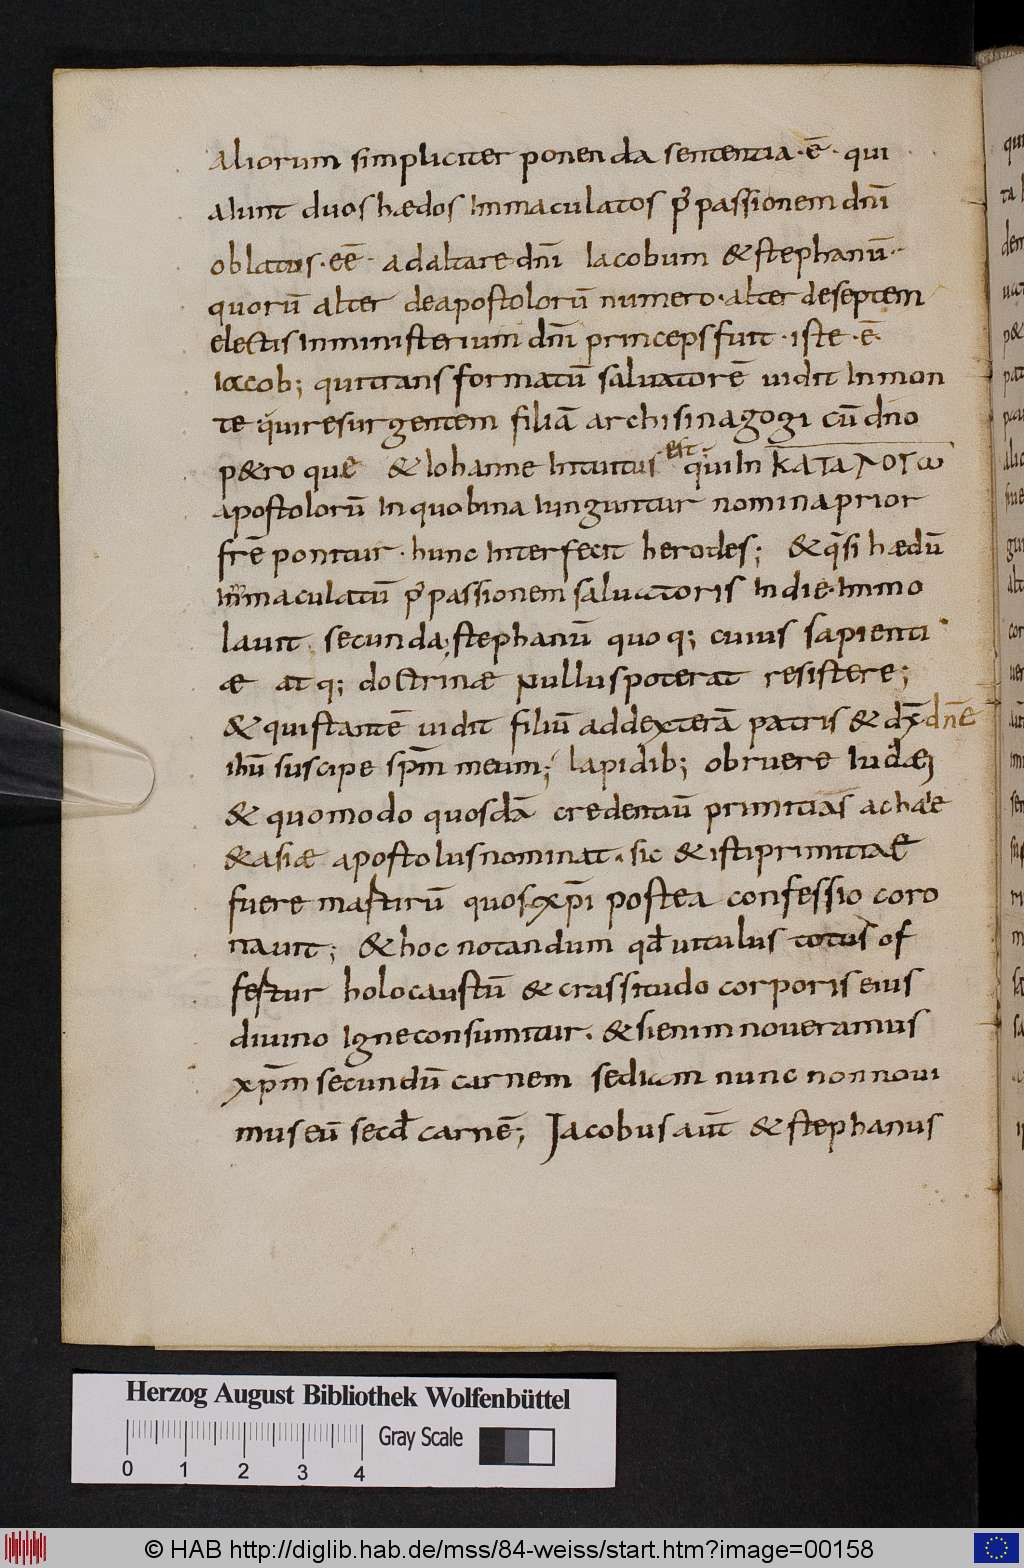 aliorum simpliciter ponenda sententia · ē · qui
aiunt duos hædos Inmaculatos p̄ passionem dn̄i
oblatos · eē · ad altare dn̄i Iacobum & stephanū ·
quorū alter de apostolorū numero · alter de septem
electis In ministerium dn̄i princeps fuit · iste · ē ·
iacob; qui transformatū saluatorē uidit In mon
te qui resurgentem filiā archisinagogi cū dn̄o
p&ro que & Iohanne Intuitus est; qui In ΚΑΤΑΛΟΓω
apostolorū In quo bina Iunguntur nomina prior
frē ponitur · hunc Interfecit herodes; & q̄si hædū
Inmaculatū p̄ passionem saluatoris In die · Immo
lauit · secunda; stephanū quoq; cuius sapienti
æ atq; doctrinæ nullus poterat resistere;
& qui stantē uidit filiū ad dexterā patris & dx̄ · dn̄e
ihū suscipe sp̄m meum; lapidib; obruere Iudæi
& quomodo quosdā credentiū primitias achaie
& asiæ apostolus nominat · sic & isti primitiae
fuere martirū quos xp̄i postea confessio coro
nauit; & hoc notandum qđ uitulus totus of
fertur holocaustū & crassitudo corporis eius
diuino Igne consumitur · & si enim noueramus
xp̄m secundū carnem sed iam nunc non noui
mus eū secđ carnē; Jacobus aūt & stephanus
Herzog August Bibliothek Wolfenbüttel
Gray Scale
0 1 2 3 4
© HAB http://diglib.hab.de/mss/84-weiss/start.htm?image=00158